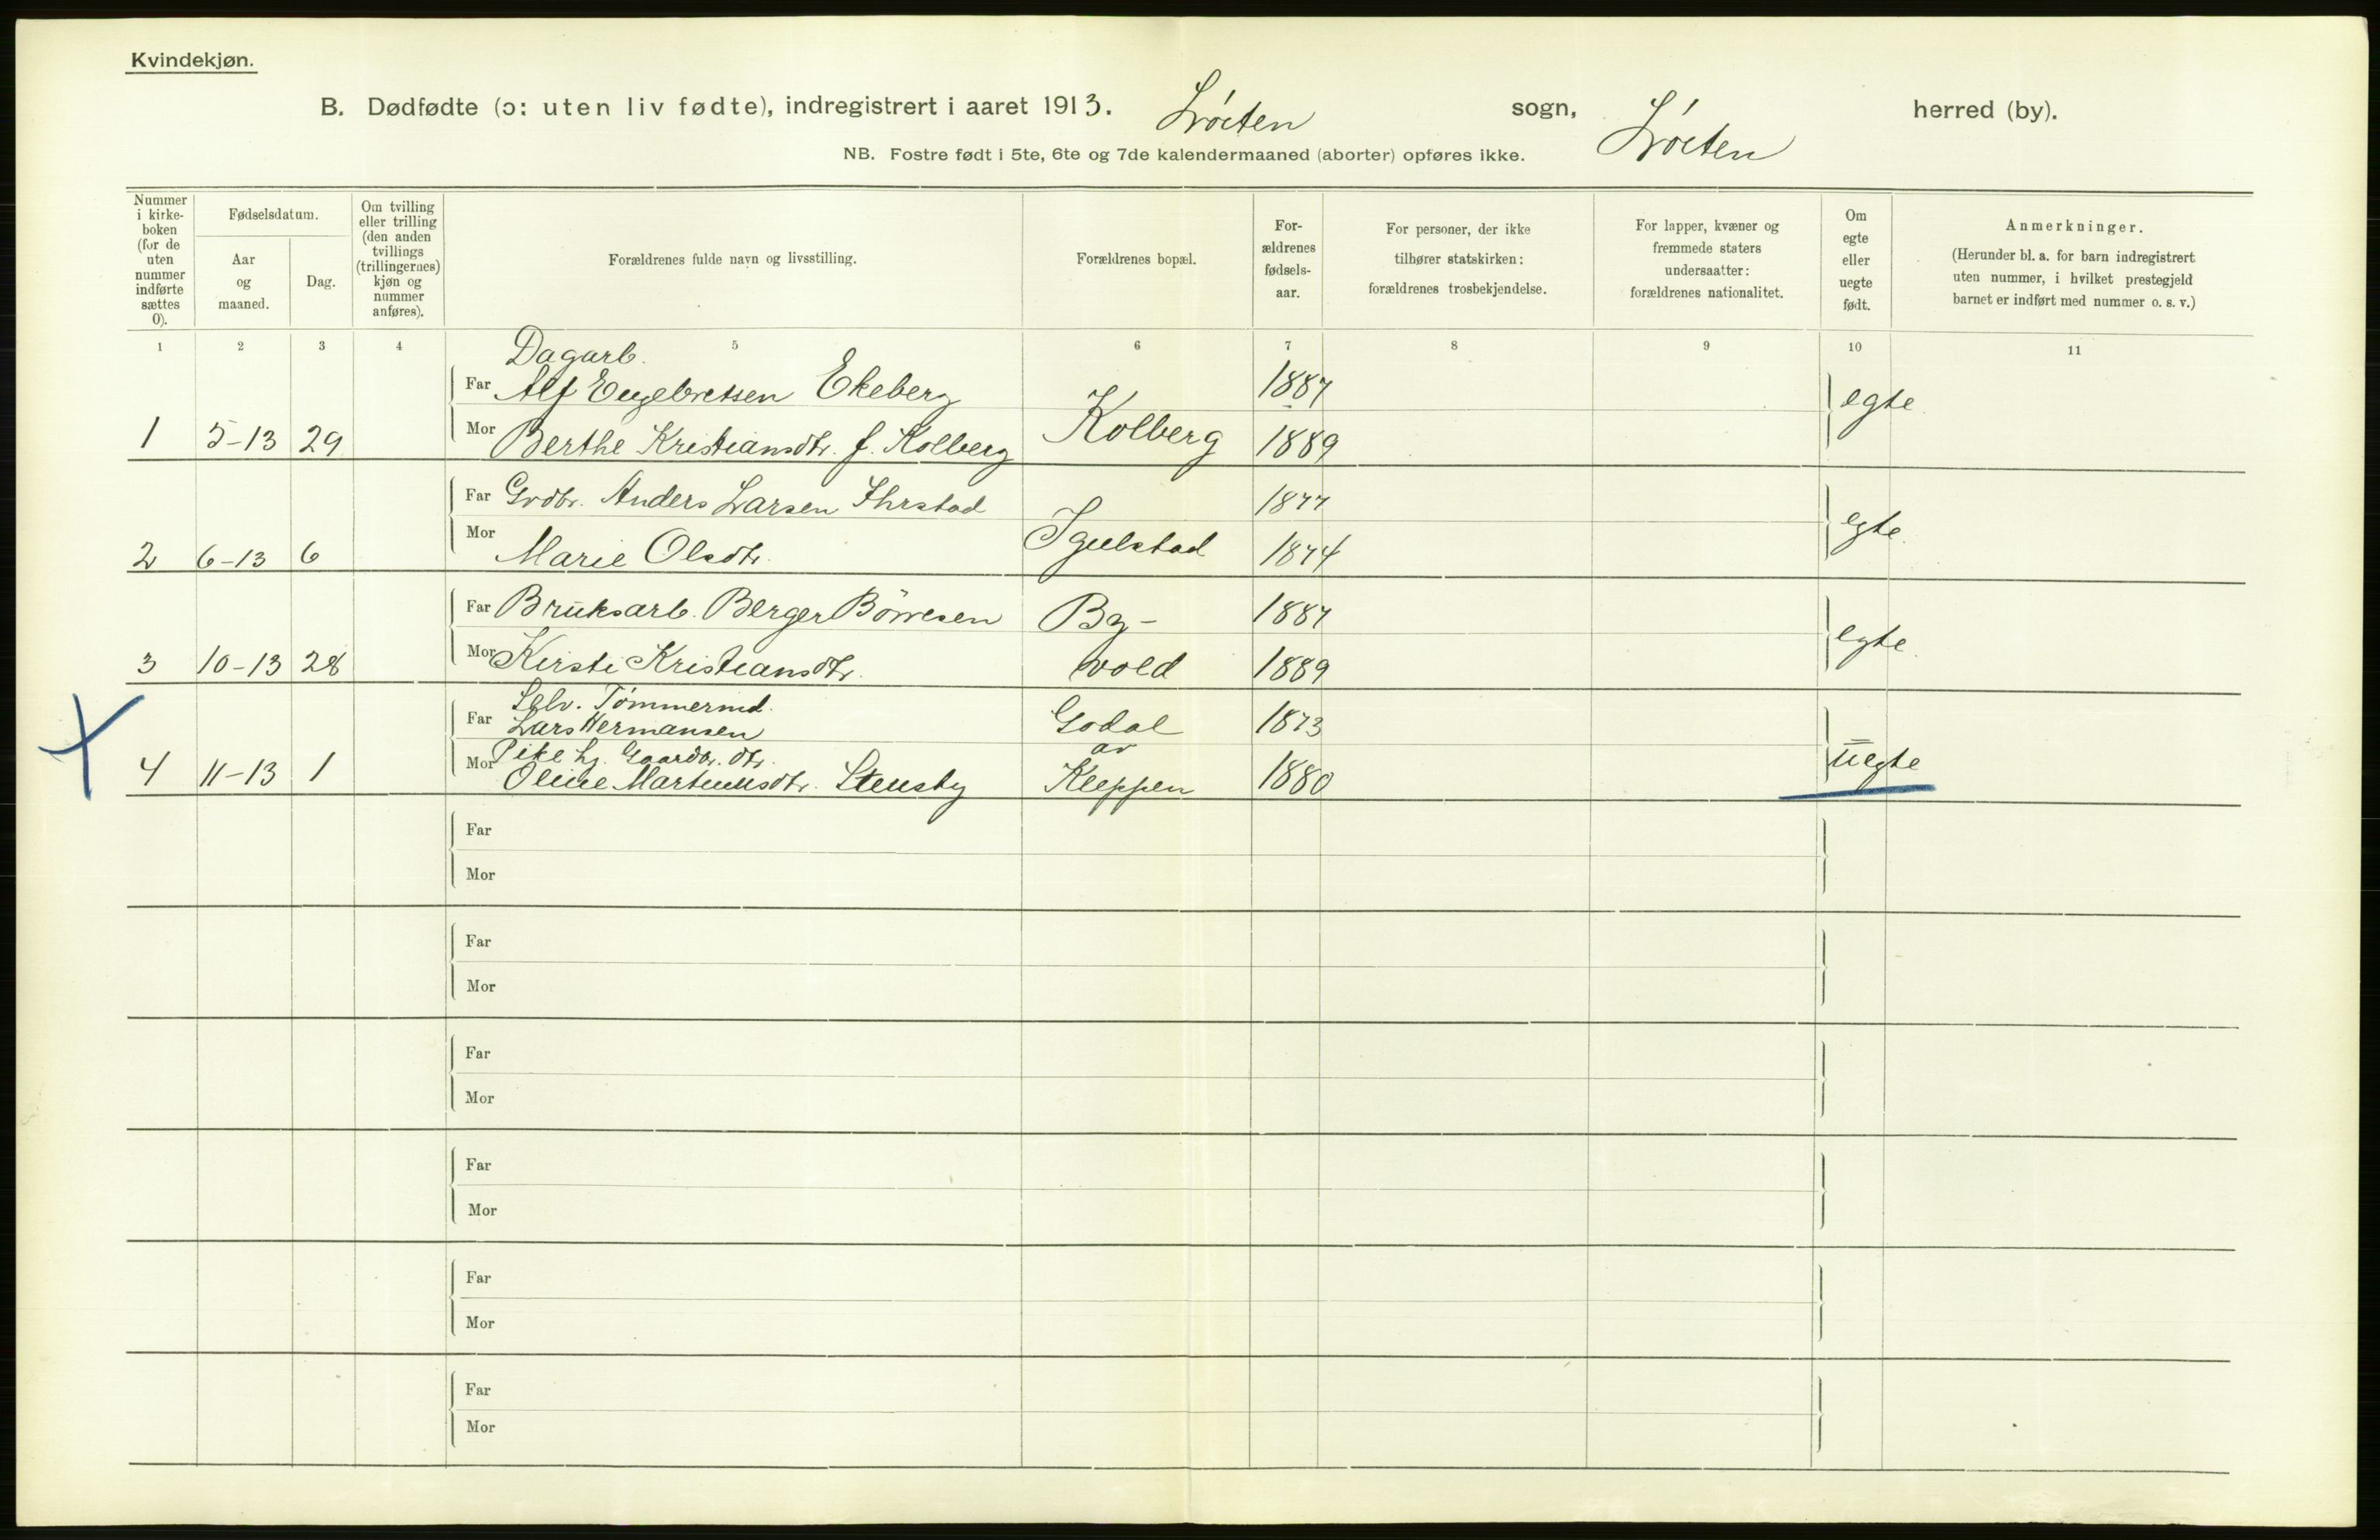 Kvindekjøn.
B. Dødfødte (ɔ: uten liv fødte), indregistrert i aaret 1913. Løiten sogn, Løiten herred (by).
NB. Fostre født i 5te, 6te og 7de kalendermaaned (aborter) opføres ikke.
Nummer i kirke-boken (for de uten nummer indførte sættes 0).
Fødselsdatum.
Aar og maaned.
Dag.
Om tvilling eller trilling (den anden tvillings (trillingernes) kjøn og nummer anføres).
Forældrenes fulde navn og livsstilling.
Forældrenes bopæl.
For-ældrenes fødsels-aar.
For personer, der ikke tilhører statskirken: forældrenes trosbekjendelse.
For lapper, kvæner og fremmede staters undersaatter: forældrenes nationalitet.
Om egte eller uegte født.
Anmerkninger.
(Herunder bl. a. for barn indregistrert uten nummer, i hvilket prestegjeld barnet er indført med nummer o. s. v.)
1 2 3 4 5 6 7 8 9 10 11
Dagarb.
Far Alf Engebretsen Ekeberg 1887 egte
1 5-13 29 Mor Berthe Kristiansdtr. f. Kolberg Kolberg 1889
Far Grdbr. Anders Larsen 1877 egte.
2 6-13 6 Mor Marie Olsdtr. Igelstad 1874
Far Bruksarb. Berger Börresen By- 1887 egte.
3 10-13 28 Mor Kirsti Kristiansdtr. vold 1889
Selv. Tömmermd.
Far Lars Hermansen Godal 1873 uegte
Pike hj. Gaardbr. dtr. av
4 11-13 1 Mor Oline Martinusdtr. Stensby Kleppen 1880
Far
Mor
Far
Mor
Far
Mor
Far
Mor
Far
Mor
Far
Mor